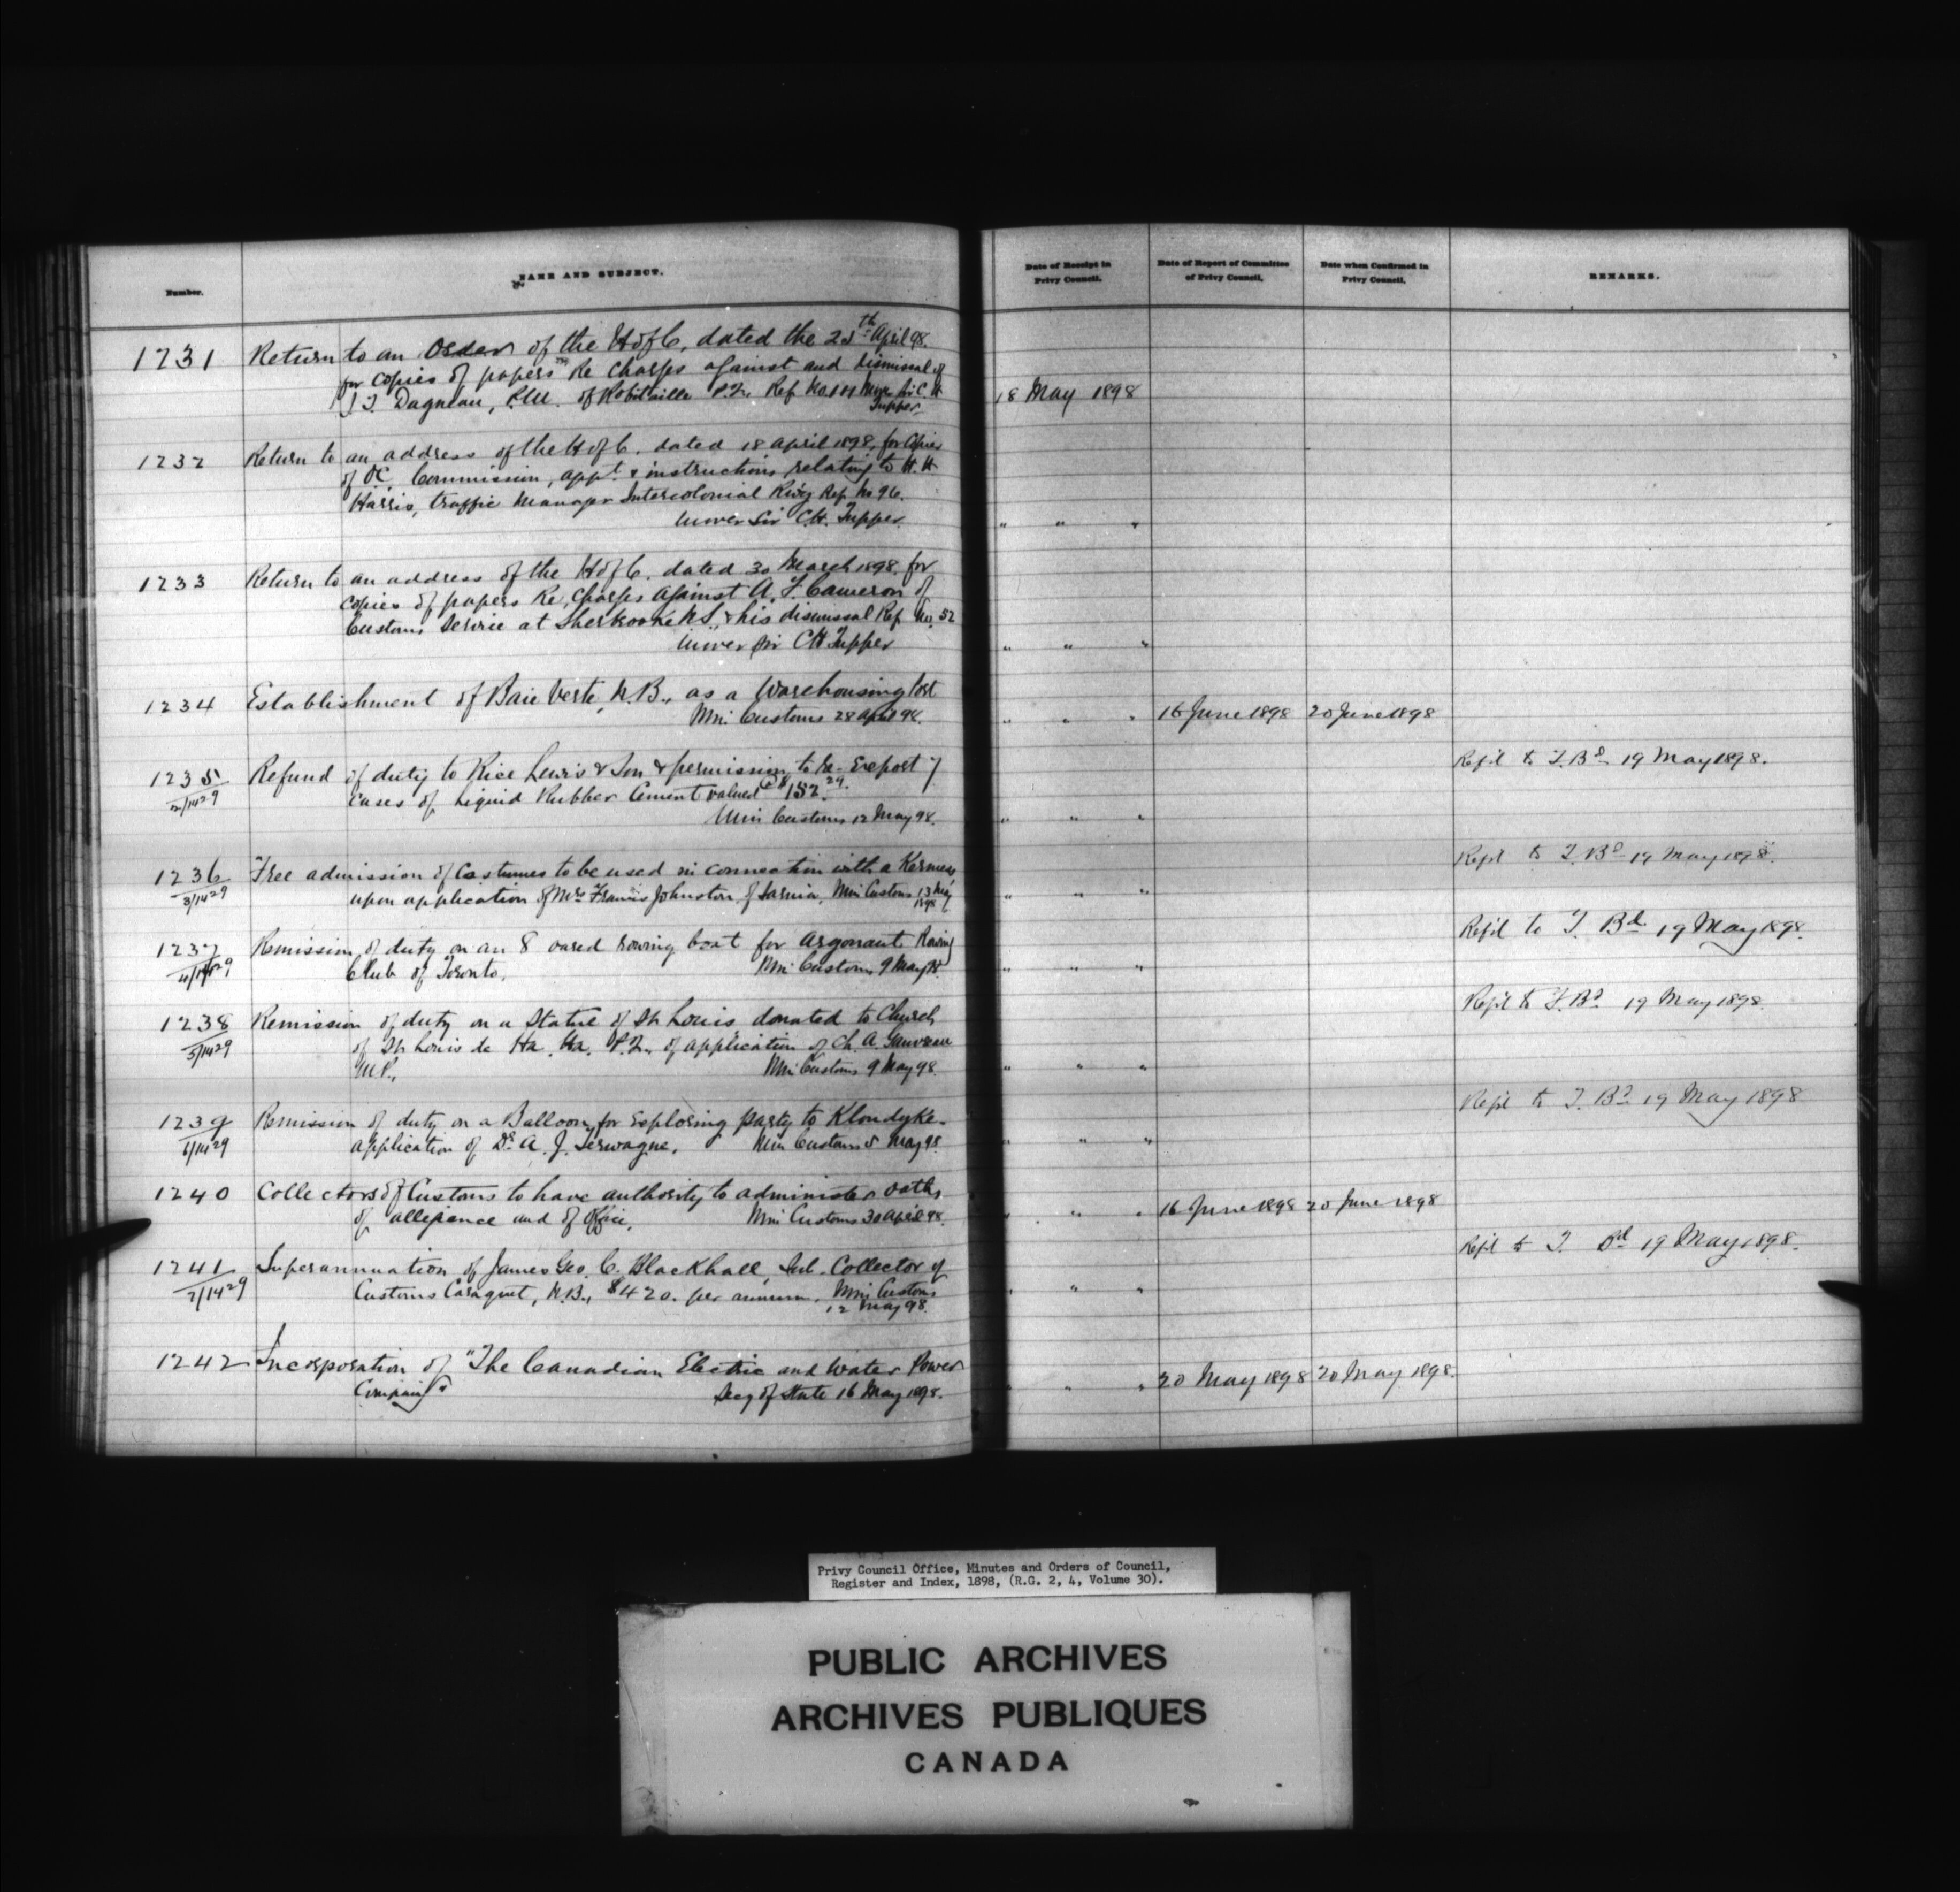 Number.
NAME AND SUBJECT.
Date of Receipt in
Privy Council.
Date of Report of Committee
of Privy Council,
Date when Confirmed in
Privy Council,
REMARKS.
1231 Return to an Order of the H of C, dated the 25th April 98.
for copies of papers Re charges against and dismissal of
J. T. Dagneau, P.M. of Robitaille P.Q. Ref No 101 Mover Sir C. H.
Tupper
18 May 1898
1232 Return to an address of the H of C. dated 18 April 1898, for Copies
of OC, Commission, appt. & instructions relating to H. H
Harris, traffic Manager Intercolonial Rwy Ref No 96.
Mover Sir C.H. Tupper.
" " "
1233 Return to an address of the H of C. dated 30 March 1898. for
copies of papers Re, charges against A. F. Cameron of
Customs Service at Sherbrooke N.S. & his dismissal Ref No. 52
Mover Sir CH Tupper
" " "
1234 Establishment of Baie Verte, N.B., as a Warehousing Port
Min: Customs 28 April 98.
" " " 16 June 1898 20 June 1898
Ref'd to T. Bd 19 May 1898.
1235 Refund of duty to Rice Lewis & Son & permission to Re-Export 7
2/1429 Cases of Liquid Rubber Cement valued @ $152.29.
Min Customs 12 May 98.
" " "
Ref'd to T. Bd 19 May 1898.
1236 Free admission of Costumes to be used in connection with a Kermess
3/1429 upon application of Mrs Francis Johnston, of Sarnia, Min Customs 13 May
1898
" " "
Ref'd to T. Bd 19 May 1898.
1237 Remission of duty on an 8 oared rowing boat for Argonaut Rowing
4/1429 Club of Toronto. Min: Customs 9 May 98.
" " "
Ref'd to T. Bd. 19 May 1898.
1238 Remission of duty on a Statue of St Louis donated to Church
5/1429 of St Louis de Ha. Ha. P.Q., of application of Ch. A. Gauvreau
M.P., Min: Customs 9 May 98.
" " "
Ref'd to T. Bd 19 May 1898
1239 Remission of duty on a Balloon, for Exploring party to Klondyke.
6/1429 application of Dr. A. J. Terwagne. Min Customs 5 May 98.
" " "
1240 Collectors of Customs to have authority to administer oaths
of allegiance and of Office, Min: Customs 30 April 98.
" " " 16 June 1898 20 June 1898
Ref'd to T. Bd 19 May 1898.
1241 Superannuation of James Geo. C. Blackhall, Sub-Collector of
7/1429 Customs Caraquet, N.B., $420. per annum. Min: Customs
12 May 98.
" " "
1242 Incorporation of "The Canadian Electric and Water Power
Company" Secy of State 16 May 1898.
" " " 20 May 1898 20 May 1898.
Privy Council Office, Minutes and Orders of Council,
Register and Index, 1898, (R.G. 2, 4, Volume 30).
PUBLIC ARCHIVES
ARCHIVES PUBLIQUES
CANADA